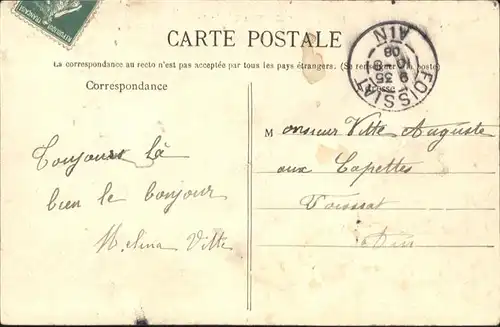 RÉPUBLIQUE FRANÇAISE
CARTE POSTALE
La correspondance au recto n'est pas acceptée par tous les pays étrangers. (Se renseigner à la poste)
Correspondance
FOISSIAT
AIN
9 35
08
Monsieur Vitte Auguste
aux Capettes
Foissiat
Ain
Toujours là
bien le bonjour
Melina Vitte